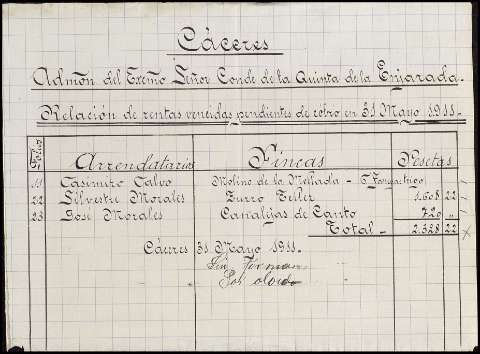 Cáceres
Admón del Excmo Señor Conde de la Quinta de la Enjarada.
Relación de rentas vencidas pendientes de cobro en 31 Mayo 1911.
Folios Arrendatarios Fincas Pesetas
11 Casimiro Calvo Molino de la Mellada -
22 Silvestre Morales Zurro 1.608 22
23 José Morales Canalejas de Canto 720 "
Total 2.328 22
Cáceres 31 Mayo 1911.
Sin firmar
Por olvido